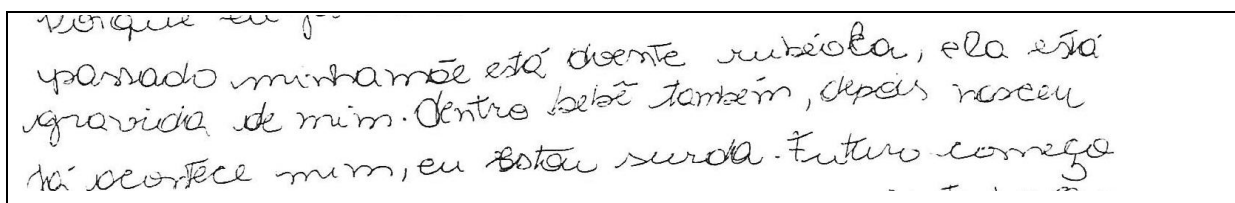 porque eu
passado minha mãe está doente rubéola, ela está
gravida de mim. Dentro bebê também, depois nasceu
tá acontece mim, eu estou surda. Futuro começo